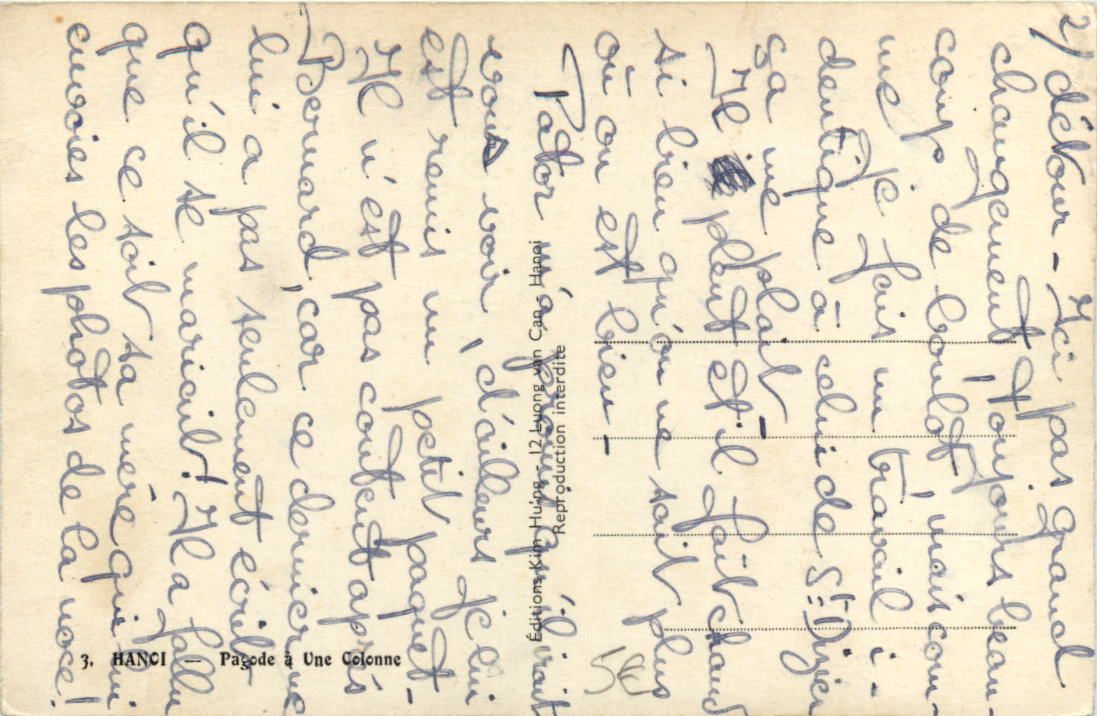 2) détour - Ici pas grand
changement. Toujours beau-
coup de boulot, mais com-
me je fais un travail i-
dentique à celui de St Dizier
ça me plait -
Il pleut et il fait chaud
si bien qu'on ne sait plus
où on est bien -
Pator m'a qu'il irait
vous voir, d'ailleurs je lui
est remis un petit paquet -
Il n'est pas content après
Bernard, car ce dernier ne
lui a pas seulement écrit
qu'il se mariait! Il a fallu
que ce soit sa mère qui lui
envoies les photos de la noce!
Éditions Kim Hu'ng - 12 Luong van Can - Hanoi
Reproduction interdite
3. HANOI — Pagode à Une Colonne
5€